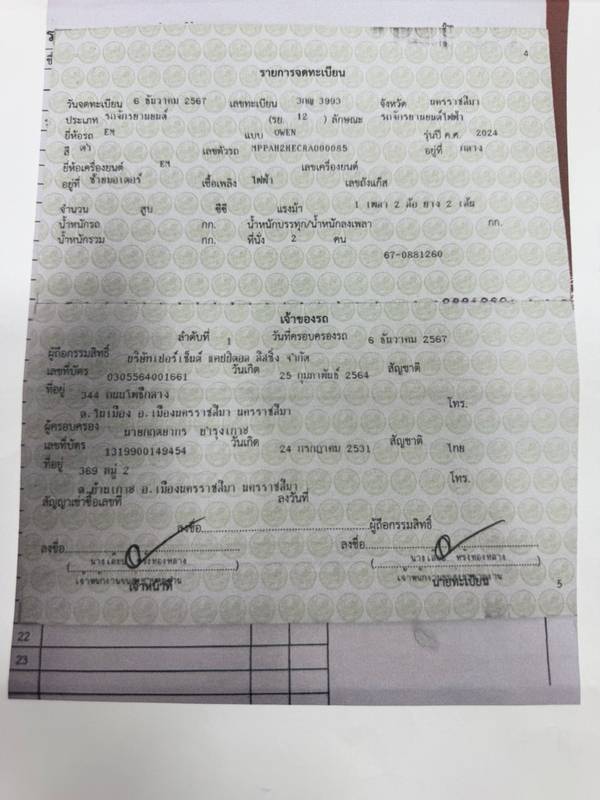 4
รายการจดทะเบียน
วันจดทะเบียน 6 ธันวาคม 2567 เลขทะเบียน 3กฌ 3993 จังหวัด นครราชสีมา
ประเภท รถจักรยานยนต์ (รย. 12 ) ลักษณะ รถจักรยานยนต์ไฟฟ้า
ยี่ห้อรถ EM แบบ OWEN รุ่นปี ค.ศ. 2024
สี ดำ เลขตัวรถ MPPAH2MECRA000085 อยู่ที่ กลาง
ยี่ห้อเครื่องยนต์ EM เลขเครื่องยนต์
อยู่ที่ ซ้ายมอเตอร์ เชื้อเพลิง ไฟฟ้า เลขถังแก๊ส
จำนวน สูบ ซีซี แรงม้า 1 เพลา 2 ล้อ ยาง 2 เส้น
น้ำหนักรถ กก. น้ำหนักบรรทุก/น้ำหนักลงเพลา กก.
น้ำหนักรวม กก. ที่นั่ง 2 คน
67-0881260
เจ้าของรถ
ลำดับที่ 1 วันที่ครอบครองรถ 6 ธันวาคม 2567
ผู้ถือกรรมสิทธิ์ บริษัทเปอร์เซ็นต์ แคปปิตอล ลีสซิ่ง จำกัด
เลขที่บัตร 0305564001661 วันเกิด 25 กุมภาพันธ์ 2564 สัญชาติ
ที่อยู่ 344 ถนนโพธิ์กลาง
ต.ในเมือง อ.เมืองนครราชสีมา นครราชสีมา โทร.
ผู้ครอบครอง นายกฤตยากร
เลขที่บัตร 1319900149454 วันเกิด 24 กรกฎาคม 2531 สัญชาติ ไทย
ที่อยู่ 369 หมู่ 2
อ.เมืองนครราชสีมา นครราชสีมา โทร.
สัญญาเช่าซื้อเลขที่ ลงวันที่
ลงชื่อ ผู้ถือกรรมสิทธิ์
ลงชื่อ ลงชื่อ
เจ้าหน้าที่ นายทะเบียน
5
22
23